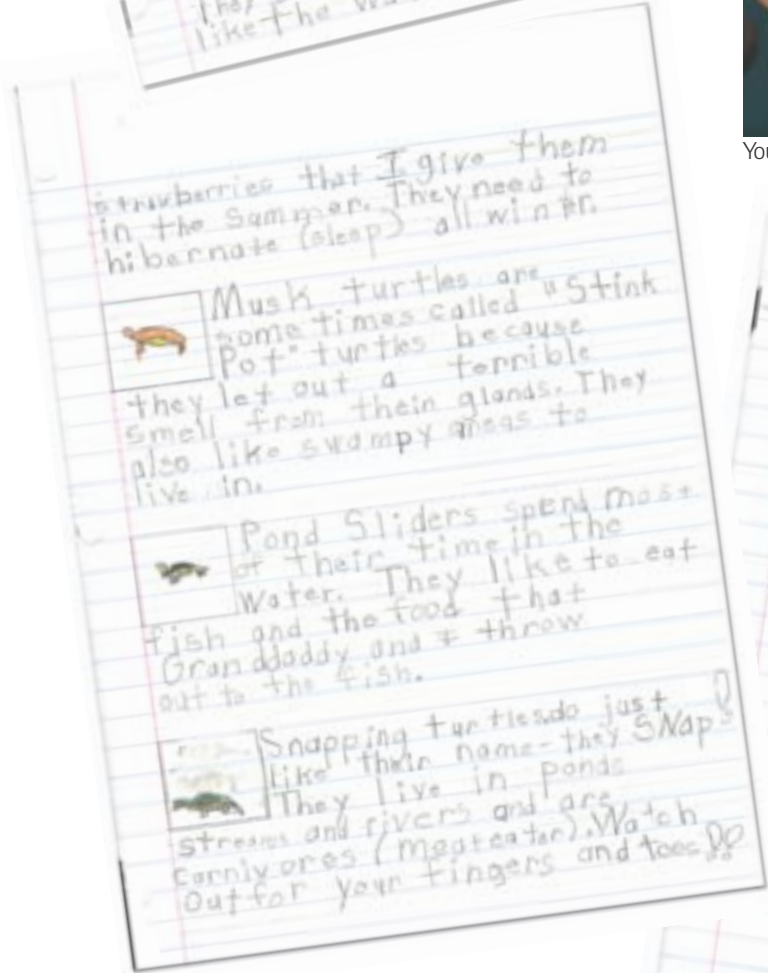 They
like the wa
You
strawberries that I give them
in the summer. They need to
hibernate (sleep) all winter.
Musk turtles are
sometimes called "Stink
Pot" turtles because
they let out a terrible
smell from their glands. They
also like swampy areas to
live in.
Pond Sliders spend most
of their time in the
Water. They like to eat
fish and the food that
Granddaddy and I throw
out to the fish.
Snapping turtles do just
like their name-they SNap!
They live in ponds
streams and rivers and are
carnivores (meateater). Watch
Out for your fingers and toes!!